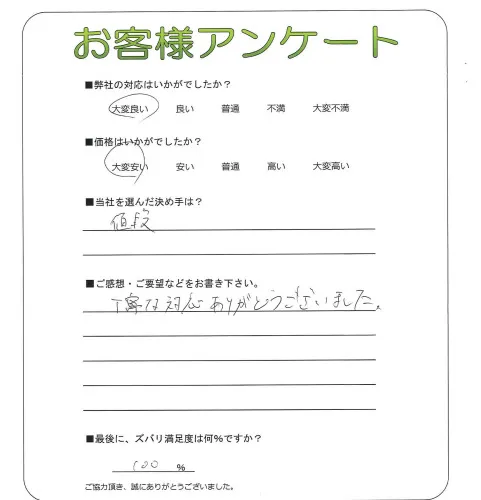 お客様アンケート
■弊社の対応はいかがでしたか？
大変良い 良い 普通 不満 大変不満
■価格はいかがでしたか？
大変安い 安い 普通 高い 大変高い
■当社を選んだ決め手は？
値段
■ご感想・ご要望などをお書き下さい。
丁寧な対応ありがとうございました。
■最後に、ズバリ満足度は何％ですか？
100 ％
ご協力頂き、誠にありがとうございました。